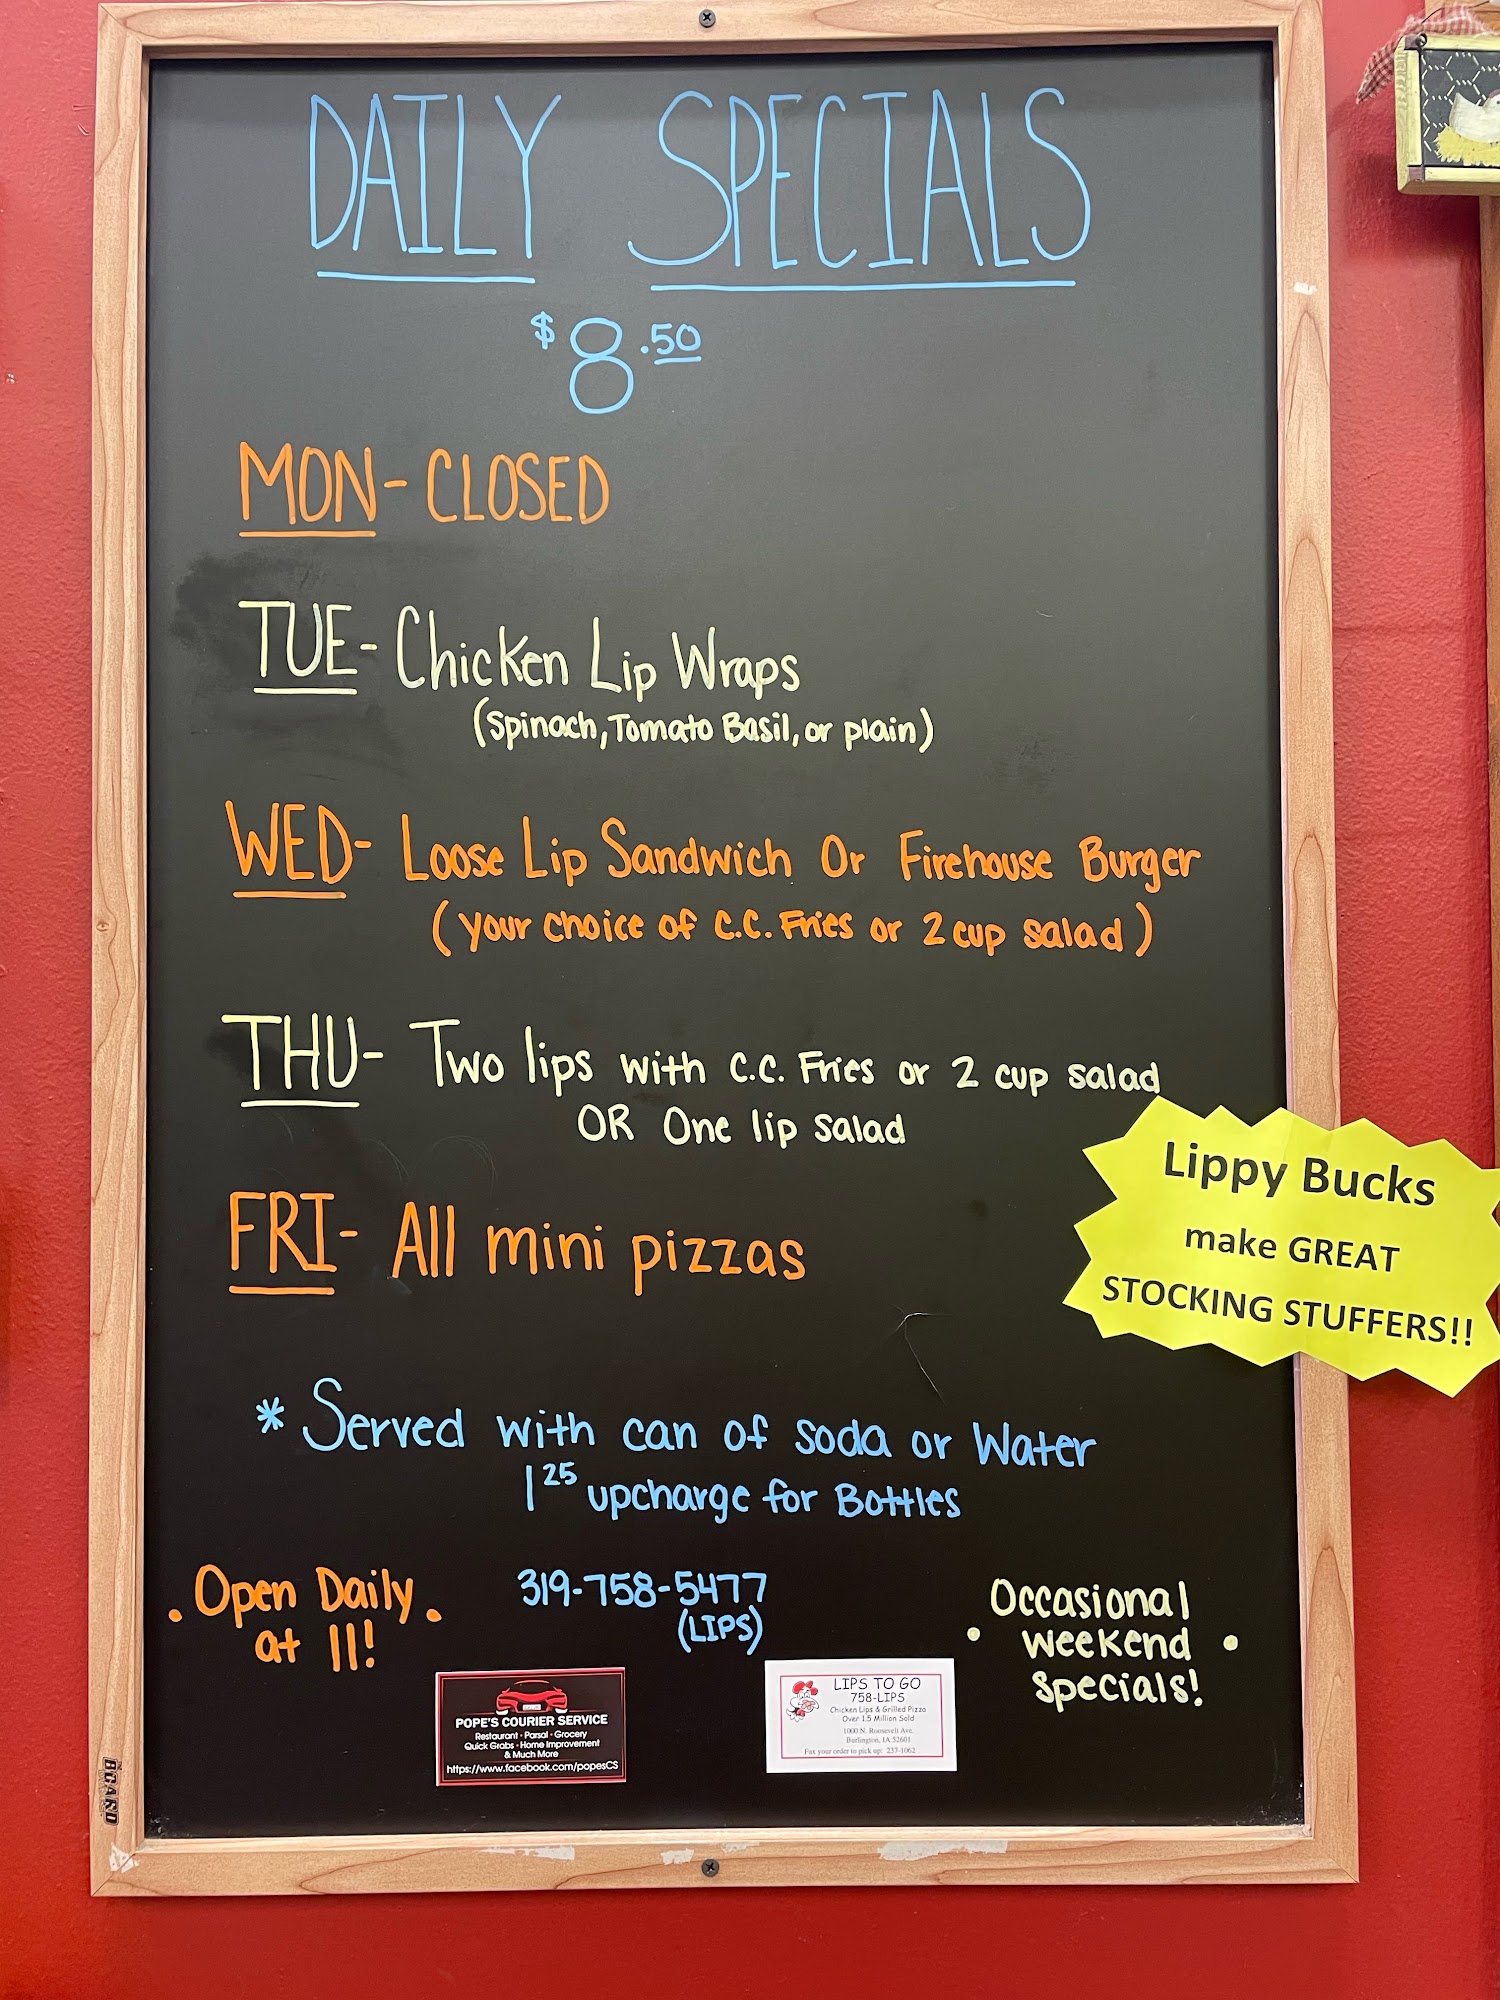 DAILY SPECIALS
$8.50
MON- CLOSED
TUE- Chicken Lip Wraps
(Spinach, Tomato Basil, or plain)
WED- Loose Lip Sandwich Or Firehouse Burger
(your choice of C.C. Fries or 2 cup salad)
THU- Two lips with C.C. Fries or 2 cup salad
OR One lip salad
FRI- All mini pizzas
Lippy Bucks
make GREAT
STOCKING STUFFERS!!
* Served with can of soda or Water
1 25 upcharge for Bottles
• Open Daily •
at 11!
319-758-5477
(LIPS)
Occasional
• Weekend •
Specials!
POPE'S COURIER SERVICE
Restaurant • Parsal • Grocery
Quick Grabs • Home Improvement
& Much More
https://www.facebook.com/popesCS
LIPS TO GO
758-LIPS
Chicken Lips & Grilled Pizza
Over 1.5 Million Sold
1000 N. Roosevelt Ave.
Burlington, IA 52601
Fax your order to pick up: 237-1062
BOARD